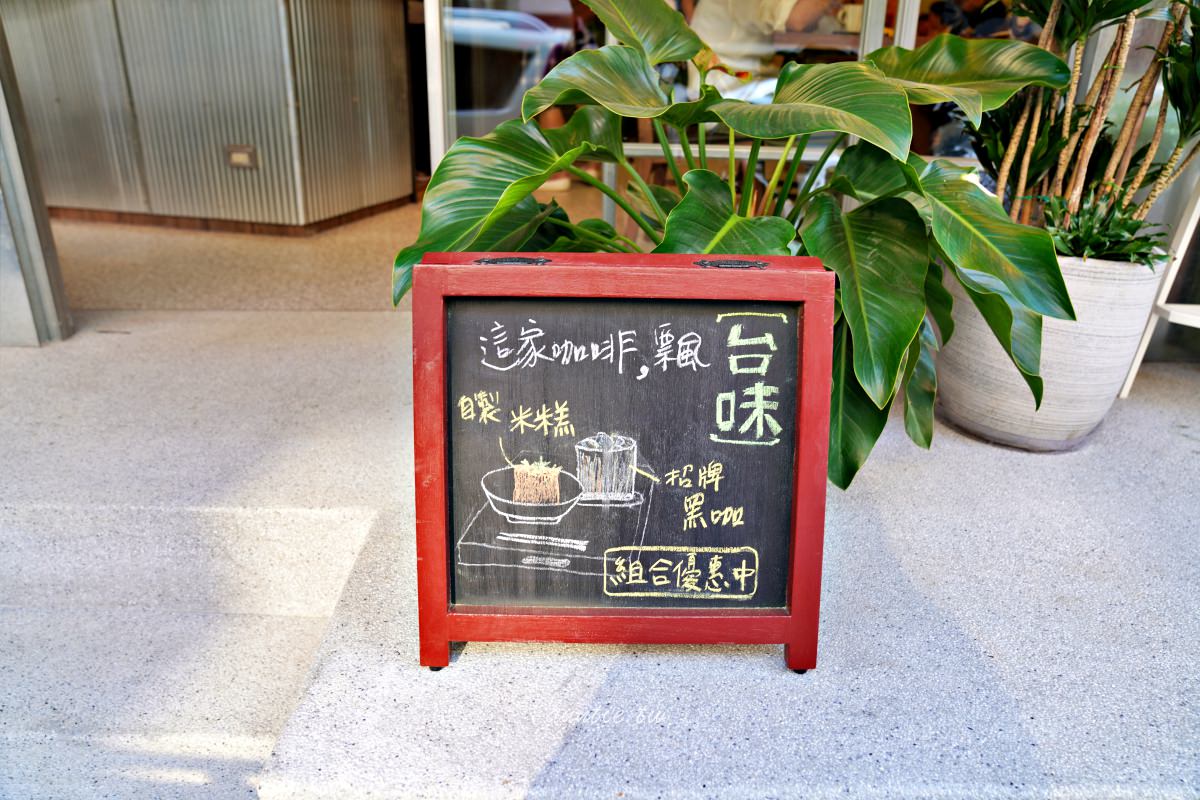 這家咖啡,飄
[台味]
自製 米糕
招牌
黑咖
組合優惠中